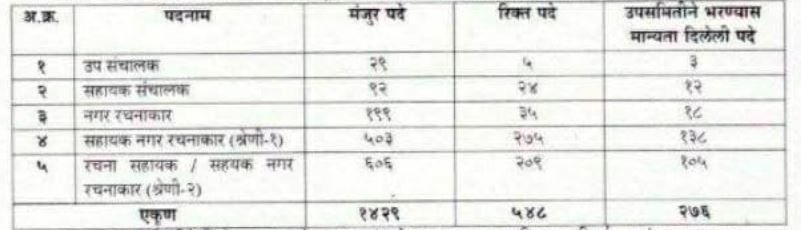 अ.क्र. पदनाम मंजुर पदे रिक्त पदे उपसमितीने भरण्यास
मान्यता दिलेली पदे
१ उप संचालक २९ ५ ३
२ सहायक संचालक ९२ २४ १२
३ नगर रचनाकार १९९ ३५ १८
४ सहायक नगर रचनाकार (श्रेणी-१) ५०३ २७५ १३८
५ रचना सहायक / सहयक नगर ६०६ २०९ १०५
रचनाकार (श्रेणी-२)
एकूण १४२९ ५४८ २७६